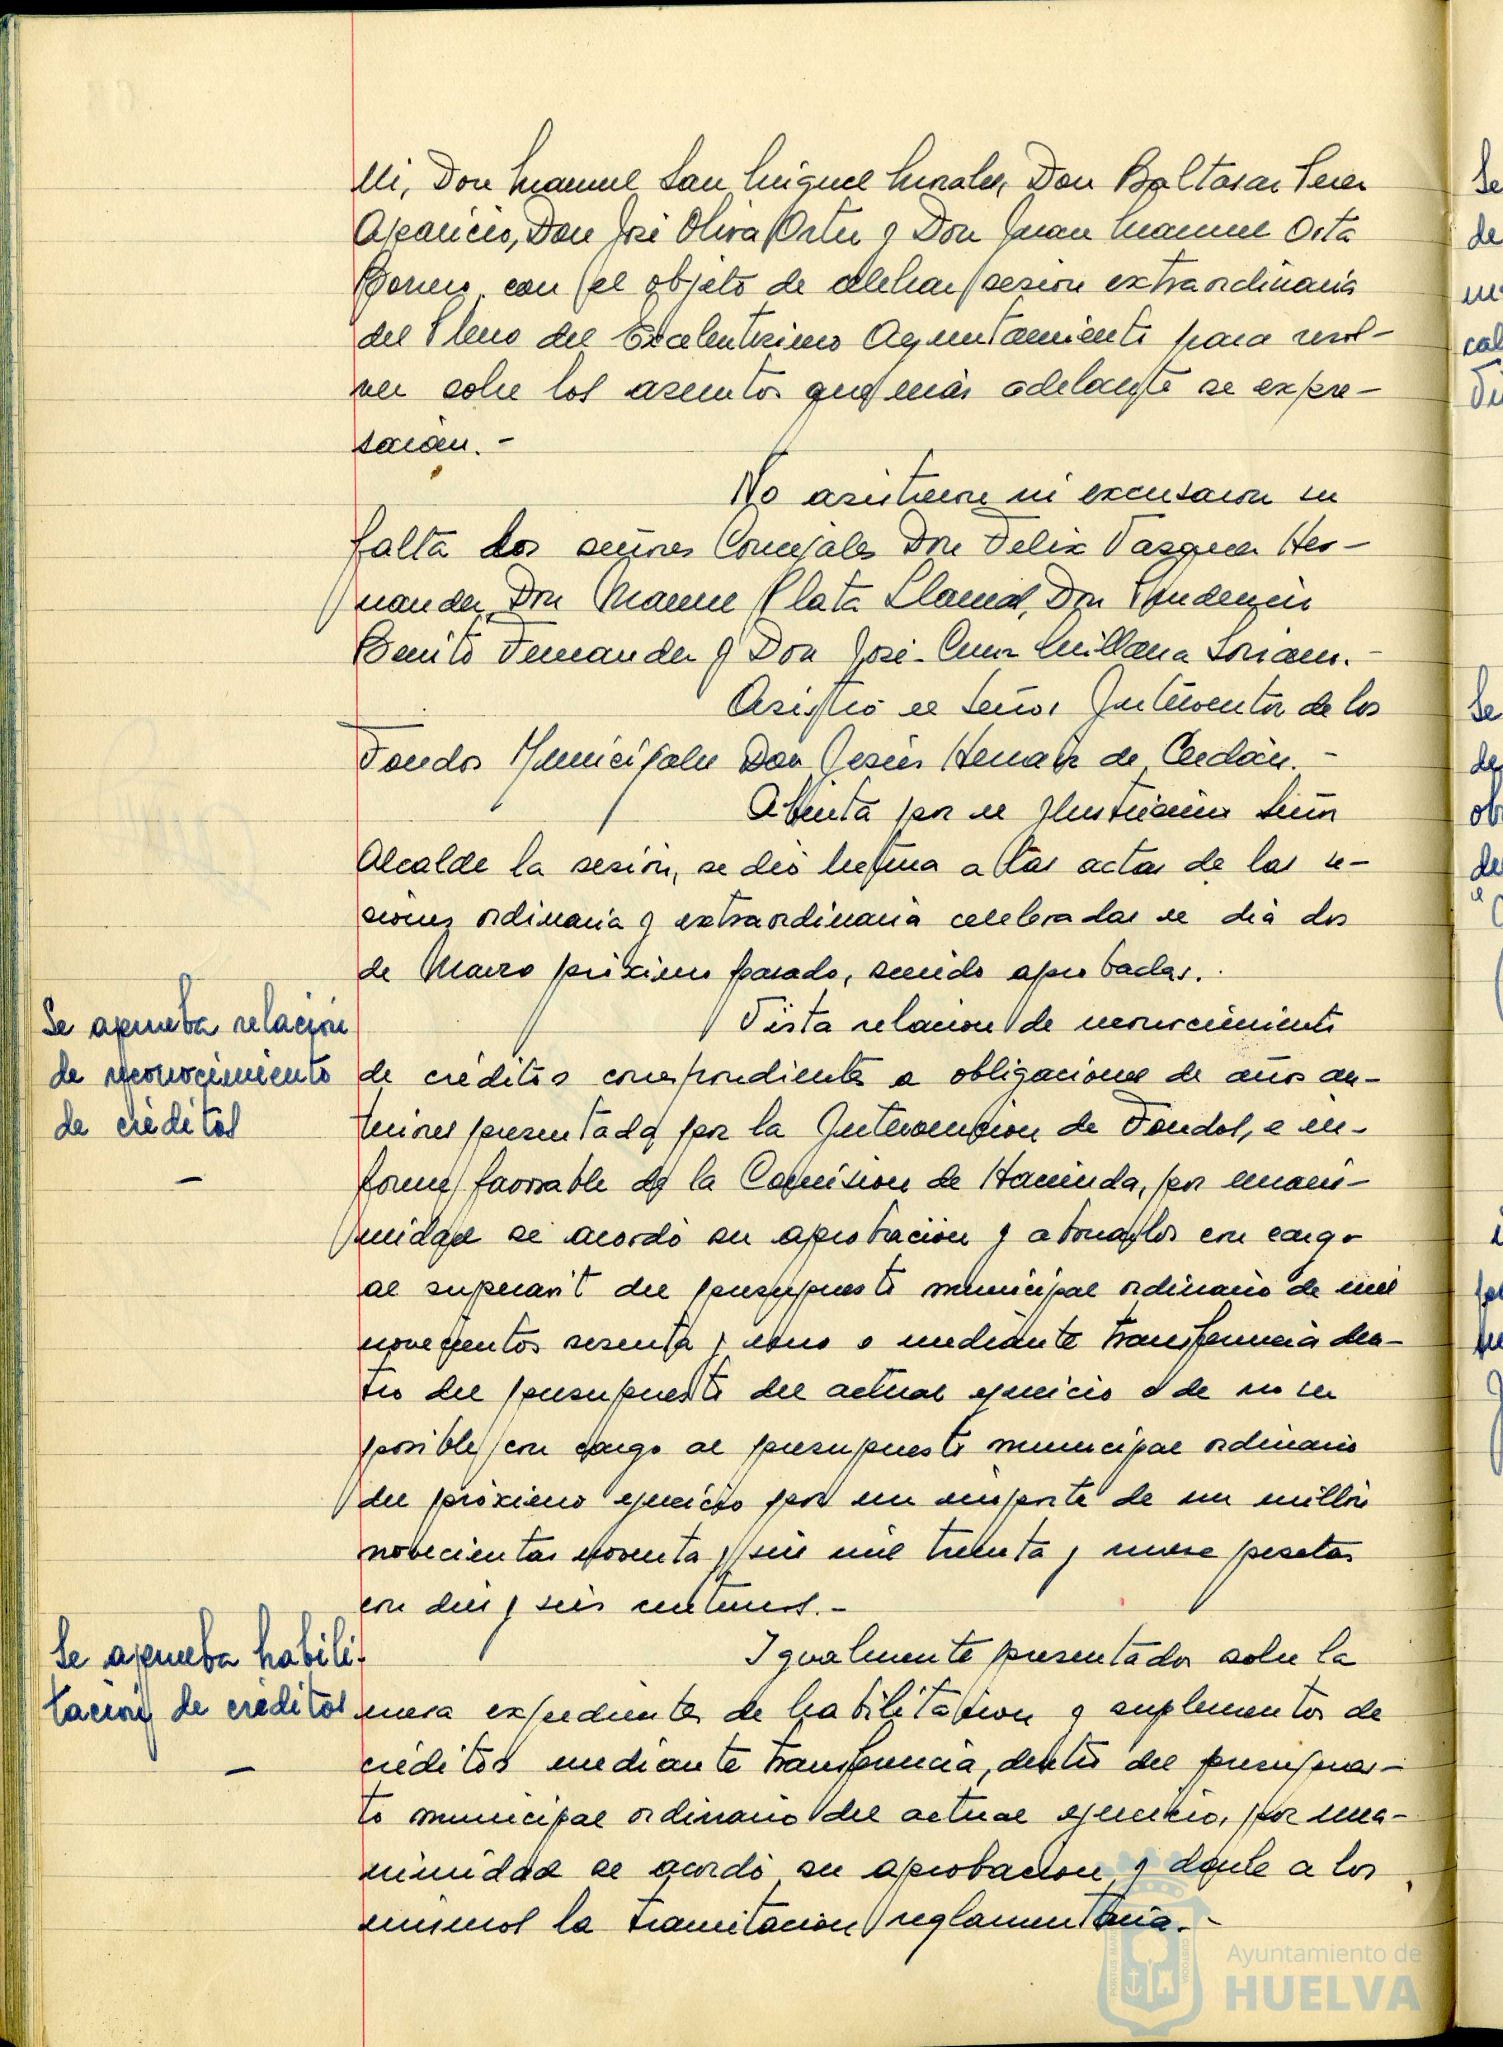 lli, Don Manuel San Miguel Morales, Don Baltasar Perez
Aparicio, Don José Oliva Ortiz y Don Juan Manuel Orta
Borrero, con el objeto de celebrar sesión extraordinaria
del Pleno del Excelentísimo Ayuntamiento para resol-
ver sobre los asuntos que más adelante se expre-
sarán.-
No asistieron ni excusaron su
falta los señores Concejales Don Felix Vazquez Her-
nandez, Don Manuel Plata Llamas, Don Prudencio
Benito Fernandez y Don José-Cruz Millana Soriano.-
Asistió el Señor Interventor de los
Fondos Municipales Don Jesús Hernaiz de Cerdán.-
Abierta por el Ilustrísimo Señor
Alcalde la sesión, se dió lectura a las actas de las se-
siones ordinaria y extraordinaria celebradas el dia dos
de Marzo próximo pasado, siendo aprobadas.
Se aprueba relación
de reconocimiento
de créditos
Vista relación de reconocimiento
de créditos correspondientes a obligaciones de años an-
teriores presentada por la Intervención de Fondos, e in-
forme favorable de la Comisión de Hacienda, por unani-
midad se acordó su aprobación y abonarlos con cargo
al superavit del presupuesto municipal ordinario de mil
novecientos sesenta y uno o mediante transferencia den-
tro del presupuesto del actual ejercicio o de no ser
posible con cargo al presupuesto municipal ordinario
del próximo ejercicio por un importe de un millón
novecientas noventa y seis mil treinta y nueve pesetas
con diez y seis centimos.-
Se aprueba habili-
tación de créditos
Igualmente presentados sobre la
mesa expedientes de habilitación y suplementos de
créditos mediante transferencia, dentro del presupues-
to municipal ordinario del actual ejercicio, por una-
nimidad se acordó su aprobación y darle a los
mismos la tramitación reglamentaria.-
Ayuntamiento de
HUELVA